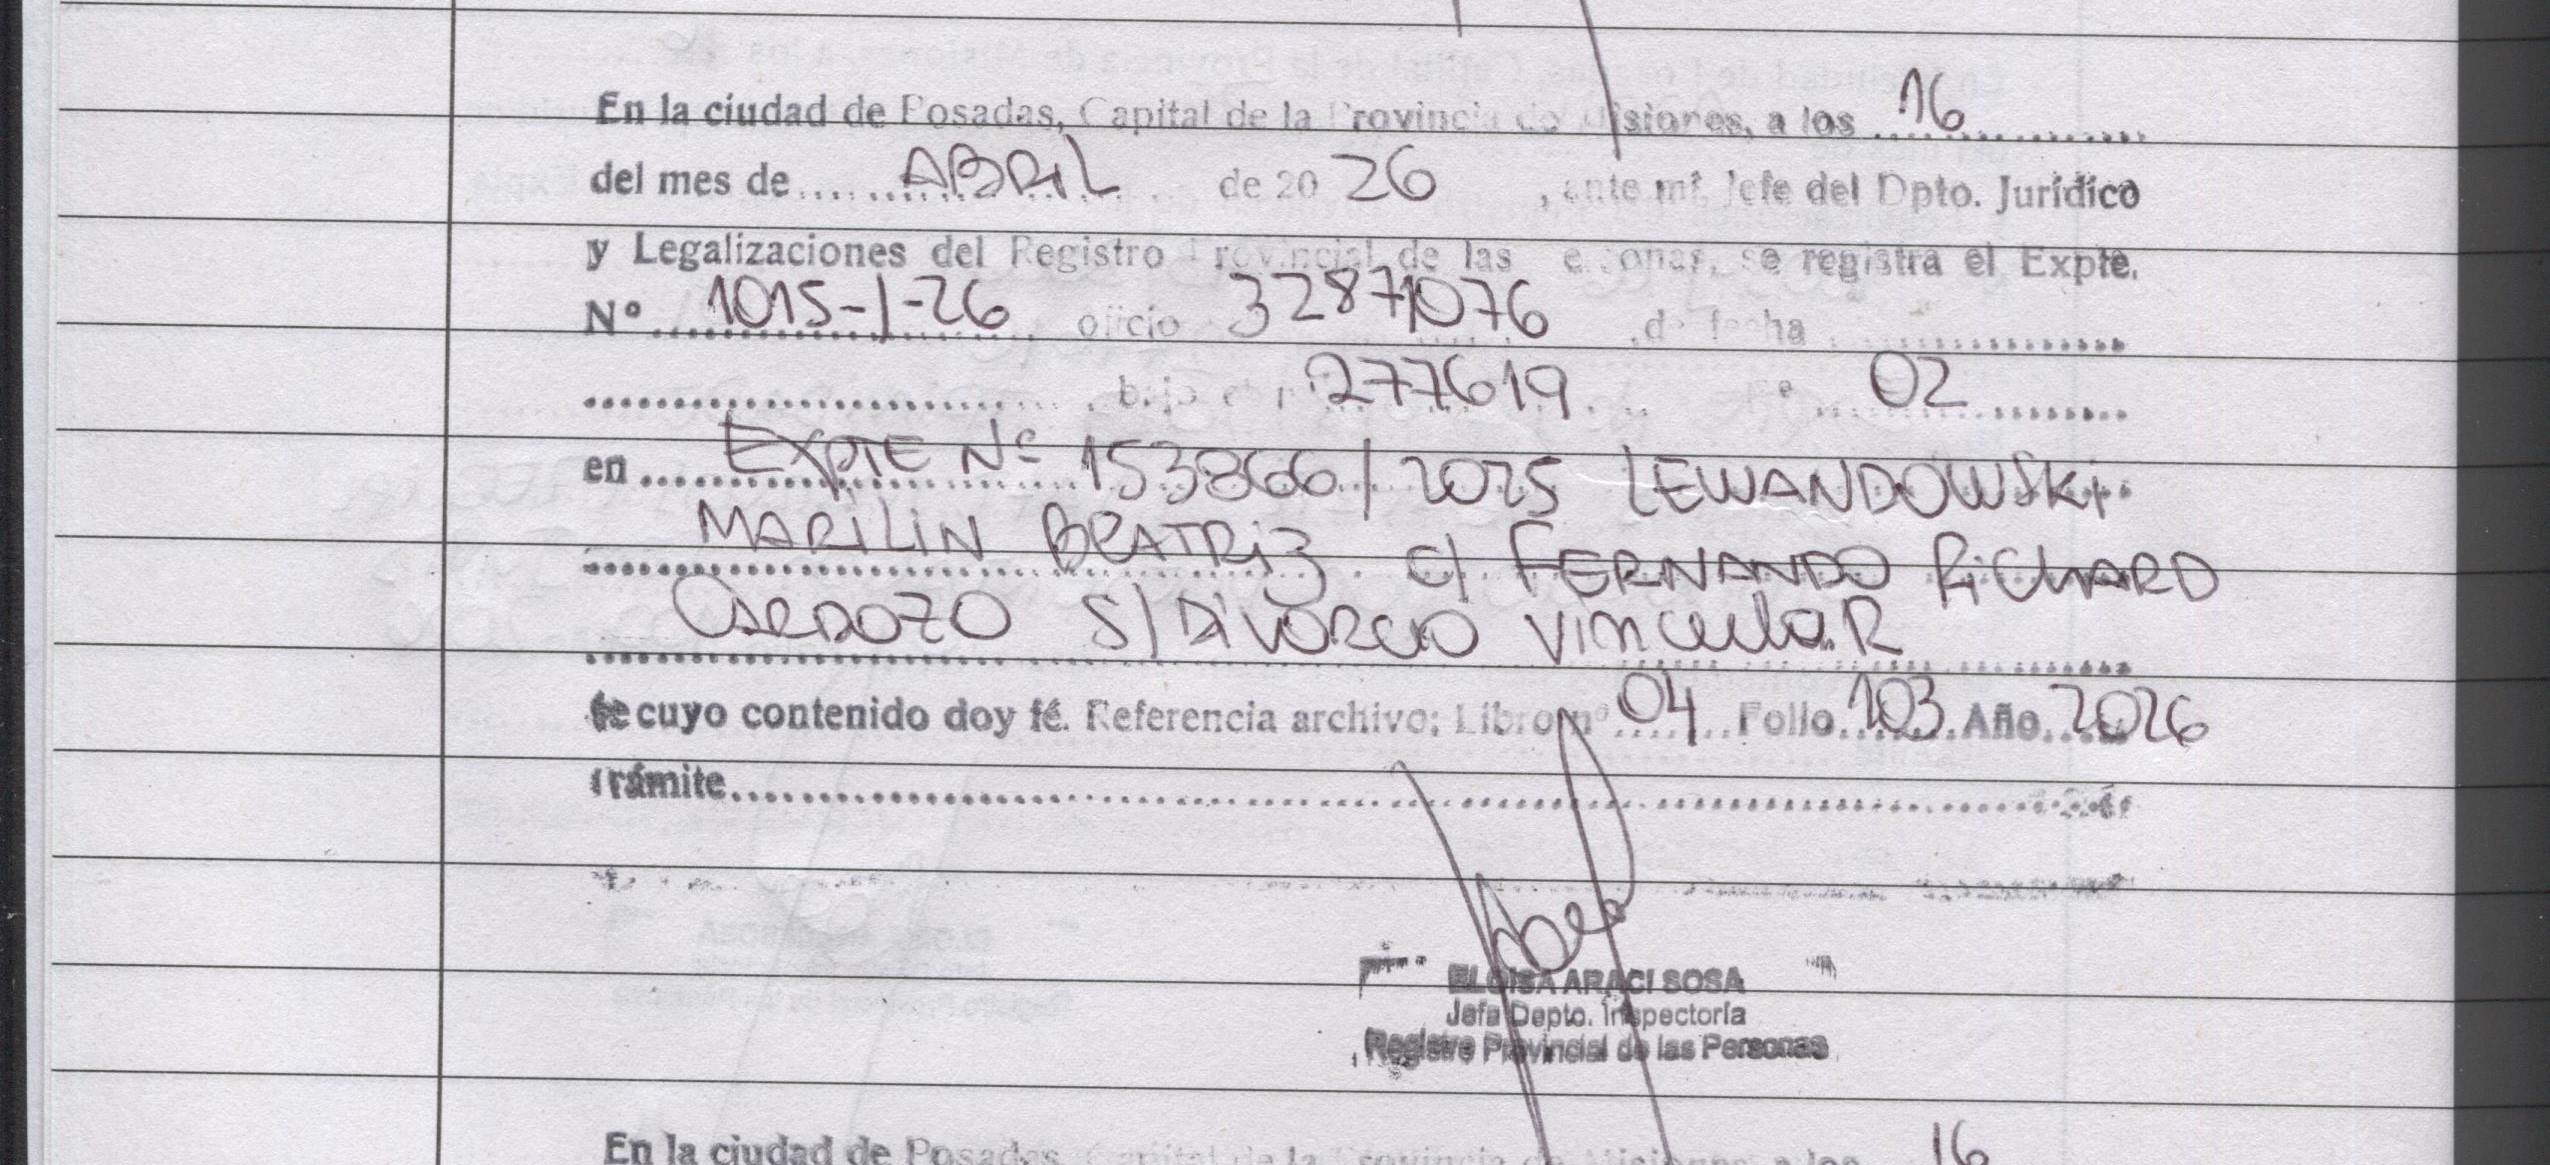 En la ciudad de Posadas, Capital de la Provincia de Misiones, a los 16
del mes de ABRIL de 20 26, ante mí, Jefe del Dpto. Jurídico
y Legalizaciones del Registro Provincial de las Personas, se registra el Expte.
Nº 1015-I-26, oficio 32871076, de fecha
bajo 277619 Nº 02
en EXPTE Nº 153866/2025 LEWANDOWSKI
MARILIN BEATRIZ C/ FERNANDO RICHARD
CARDOZO S/ DIVORCIO VINCULAR
de cuyo contenido doy fé. Referencia archivo: Libro nº 04 Folio 103 Año 2026
Trámite
ELOISA ARACI SOSA
Jefa Depto. Inspectoría
Registro Provincial de las Personas
En la ciudad de Posadas, Capital de la Provincia de Misiones, a los 16